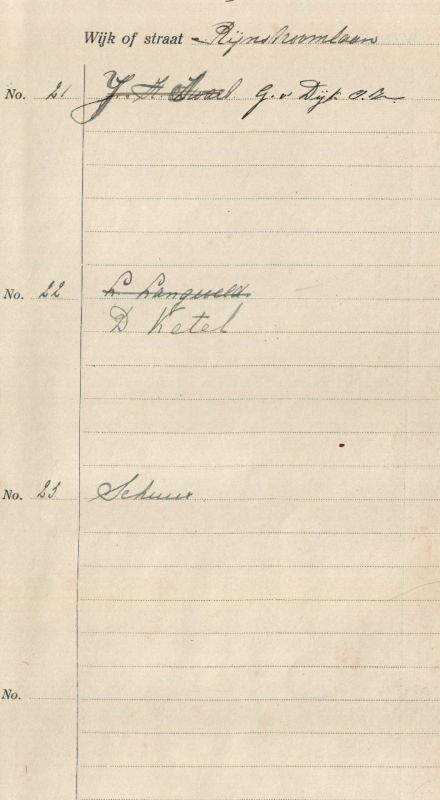 Wijk of straat - Rijnstroomlaan
No. 21 G. v Dijk
No. 22 L Langveld
D Ketel
No. 23 Schuur
No.